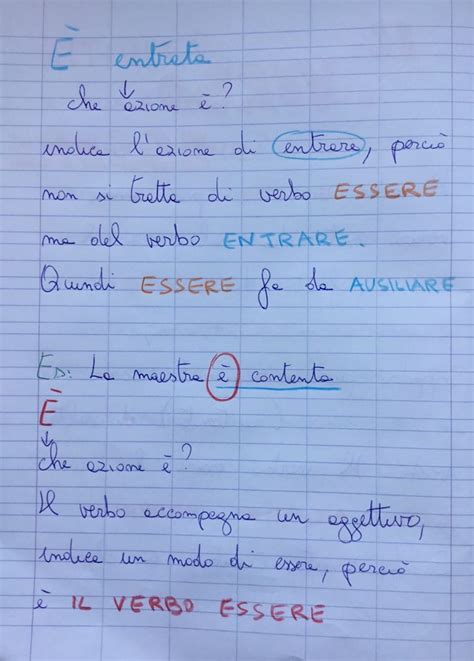 È entrata
che azione è?
indica l'azione di entrare, perciò
non si tratta di verbo ESSERE
ma del verbo ENTRARE.
Quindi ESSERE fa da AUSILIARE
ES: La maestra è contenta
È
che azione è?
Il verbo accompagna un aggettivo,
indica un modo di essere, perciò
è IL VERBO ESSERE